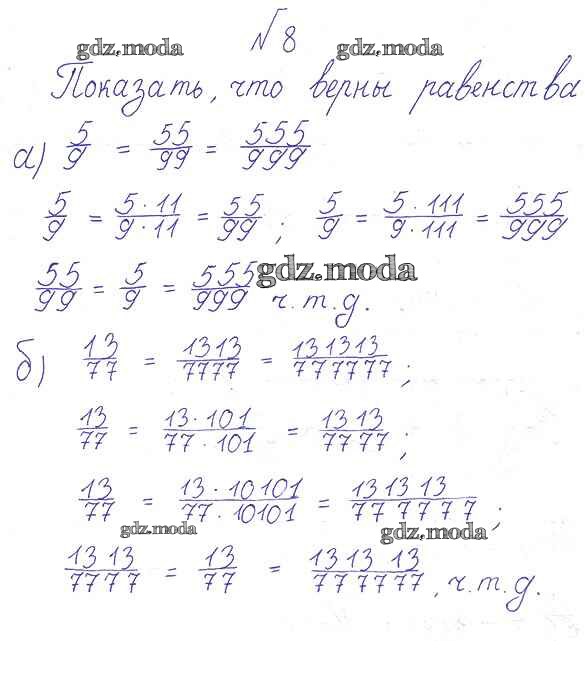 № 8
gdz.moda gdz.moda
Показать, что верны равенства
а) 5/9 = 55/99 = 555/999
5/9 = 5·11/9·11 = 55/99 ; 5/9 = 5·111/9·111 = 555/999
55/99 = 5/9 = 555/999 ч.т.д.
gdz.moda
б) 13/77 = 1313/7777 = 131313/777777 ;
13/77 = 13·101/77·101 = 1313/7777 ;
13/77 = 13·10101/77·10101 = 131313/777777 ;
gdz.moda gdz.moda
1313/7777 = 13/77 = 131313/777777 , ч.т.д.